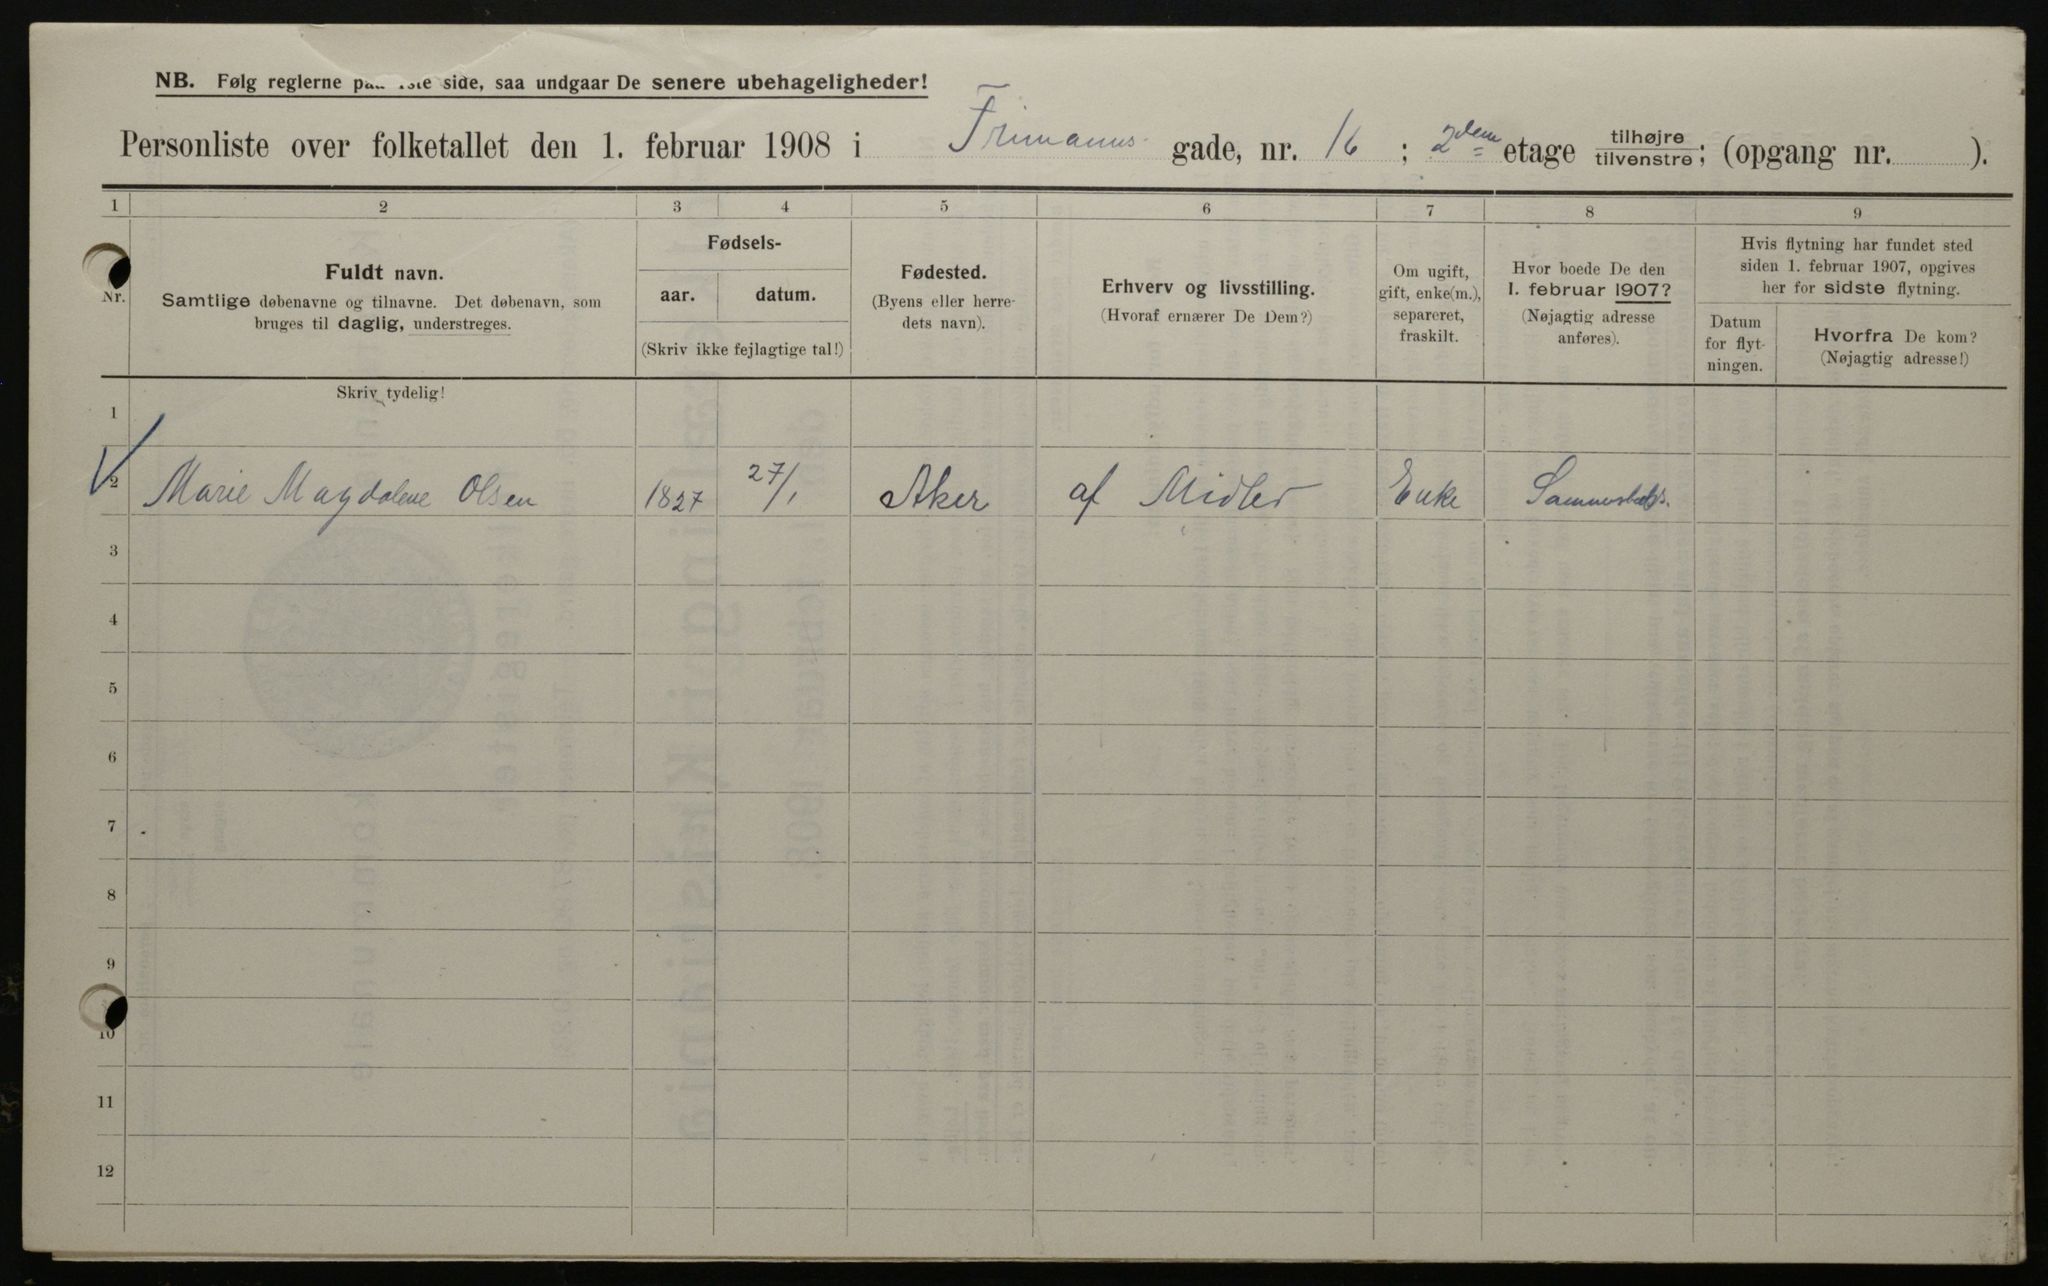 NB. Følg reglerne paa side, saa undgaar De senere ubehageligheder!
Personliste over folketallet den 1. februar 1908 i Frimanns gade, nr. 16 ; 2den etage tilhøjre tilvenstre; (opgang nr. ).
1 2 3 4 5 6 7 8 9
Nr.
Fuldt navn.
Samtlige døbenavne og tilnavne. Det døbenavn, som
bruges til daglig, understreges.
Fødsels-
aar. datum.
(Skriv ikke fejlagtige tal!)
Fødested.
(Byens eller herre-
dets navn).
Erhverv og livsstilling.
(Hvoraf ernærer De Dem?)
Om ugift,
gift, enke(m.),
separeret,
fraskilt.
Hvor boede De den
1. februar 1907?
(Nøjagtig adresse
anføres).
Hvis flytning har fundet sted
siden 1. februar 1907, opgives
her for sidste flytning.
Datum
for flyt-
ningen.
Hvorfra De kom?
(Nøjagtig adresse!)
Skriv tydelig!
1
2 Marie Magdalene Olsen 1827 27/1 Aker af Midler Enke Sammesteds.
3
4
5
6
7
8
9
10
11
12